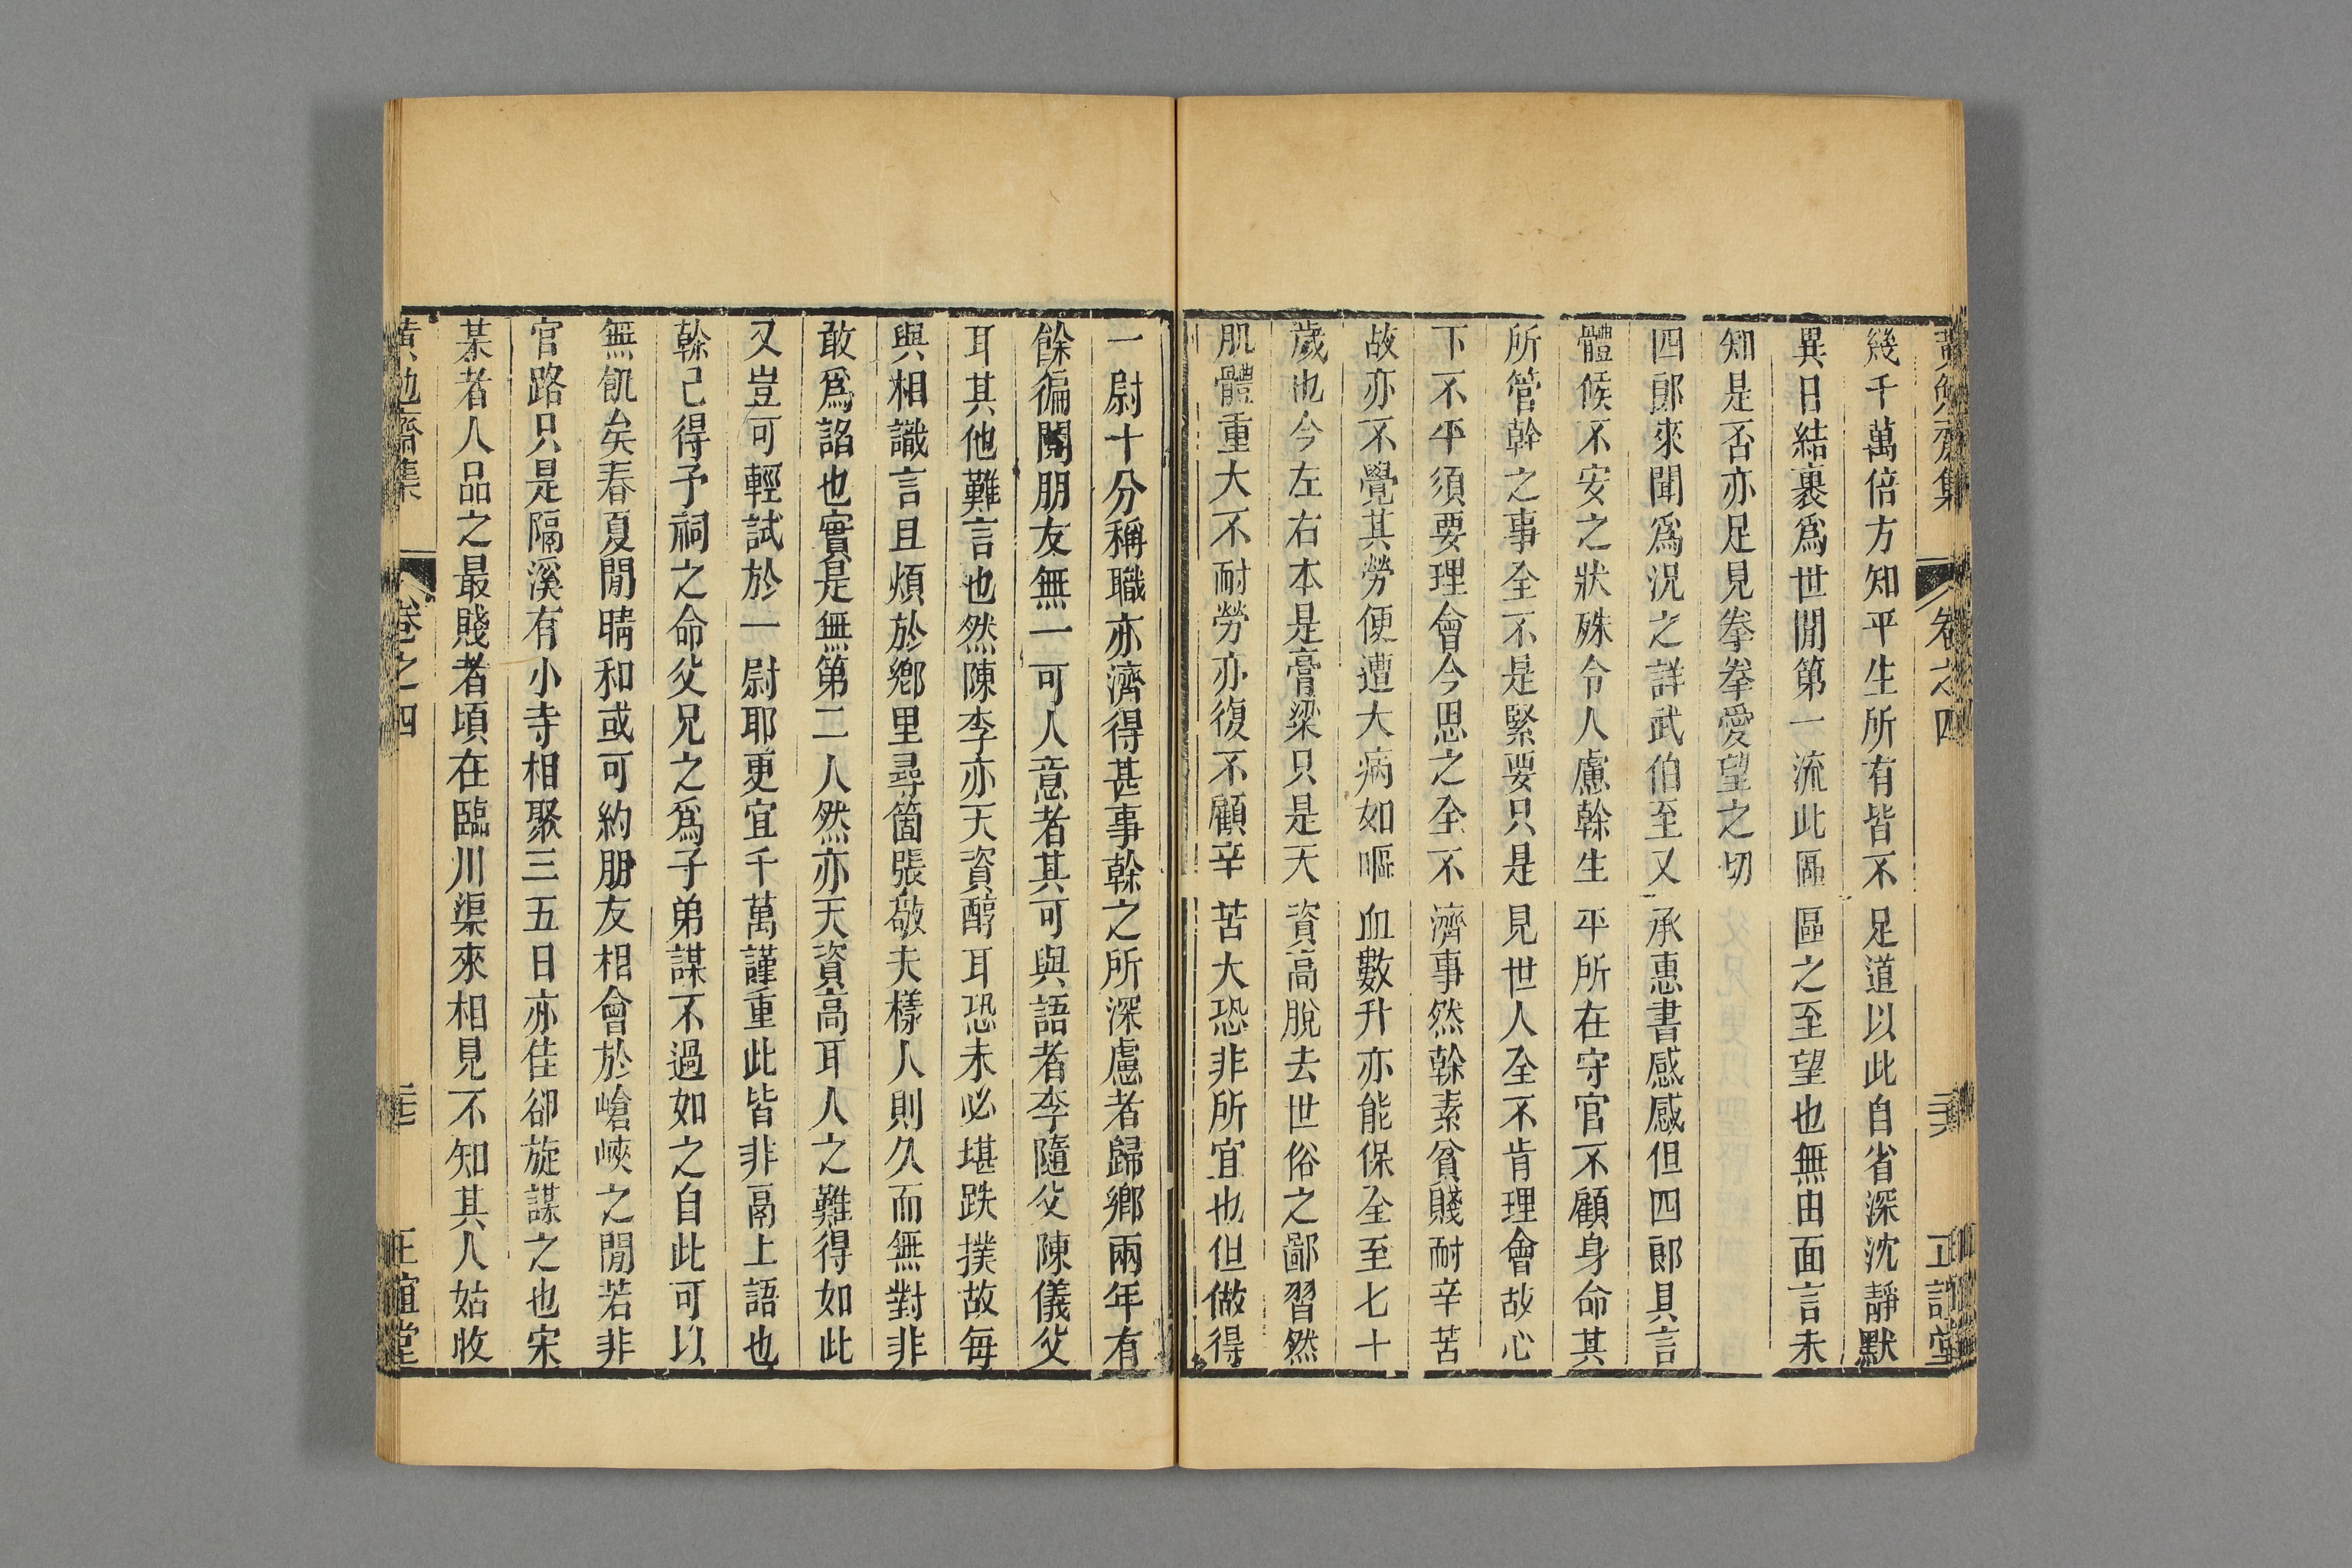 黃勉齋集 卷之四 正誼堂
幾千萬倍方知平生所有皆不足道以此自省深沈靜默
異日結裹爲世閒第一流此區區之至望也無由面言未
知是否亦足見拳拳愛望之切
四郞來聞爲況之詳武伯至又承惠書感感但四郞具言
體候不安之狀殊令人慮幹生平所在守官不顧身命其
所管幹之事全不是緊要只是見世人全不肯理會故心
下不平須要理會今思之全不濟事然幹素貧賤耐辛苦
故亦不覺其勞便遭大病如嘔血數升亦能保全至七十
歲也今左右本是膏粱只是天資高脫去世俗之鄙習然
肌體重大不耐勞亦復不顧辛苦大恐非所宜也但做得
一尉十分稱職亦濟得甚事幹之所深慮者歸鄉兩年有
餘徧閱朋友無一可人意者其可與語者李隨父陳儀父
耳其他難言也然陳李亦天資醇耳恐未必堪跌撲故每
與相識言且煩於鄉里尋箇張敬夫樣人則久而無對非
敢爲諂也實是無第二人然亦天資高耳人之難得如此
又豈可輕試於一尉耶更宜千萬謹重此皆非鬲上語也
幹已得予祠之命父兄之爲子弟謀不過如之自此可以
無飢矣春夏閒晴和或可約朋友相會於嵢峽之閒若非
官路只是隔溪有小寺相聚三五日亦佳卻旋謀之也宋
某者人品之最賤者頃在臨川渠來相見不知其人姑收
黃勉齋集 卷之四 正誼堂